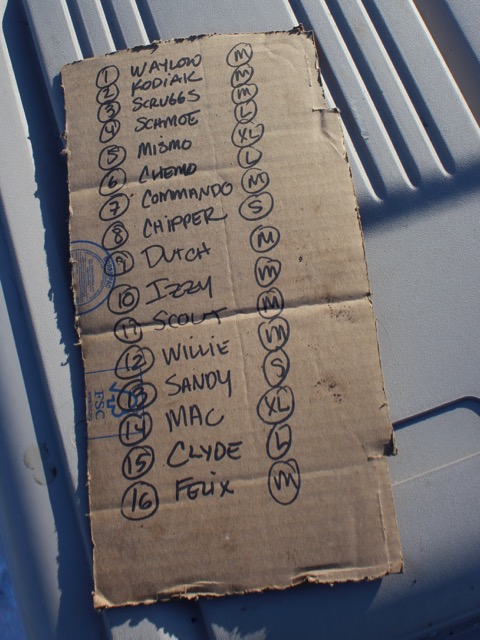 1 WAYLON M
2 KODIAK M
3 SCRUGGS M
4 SCHMOE L
5 MISMO XL
6 CHEMO L
7 COMMANDO M
8 CHIPPER S
9 DUTCH M
10 IZZY M
11 SCOUT M
12 WILLIE M
13 SANDY S
14 MAC XL
15 CLYDE L
16 FELIX M
FSC